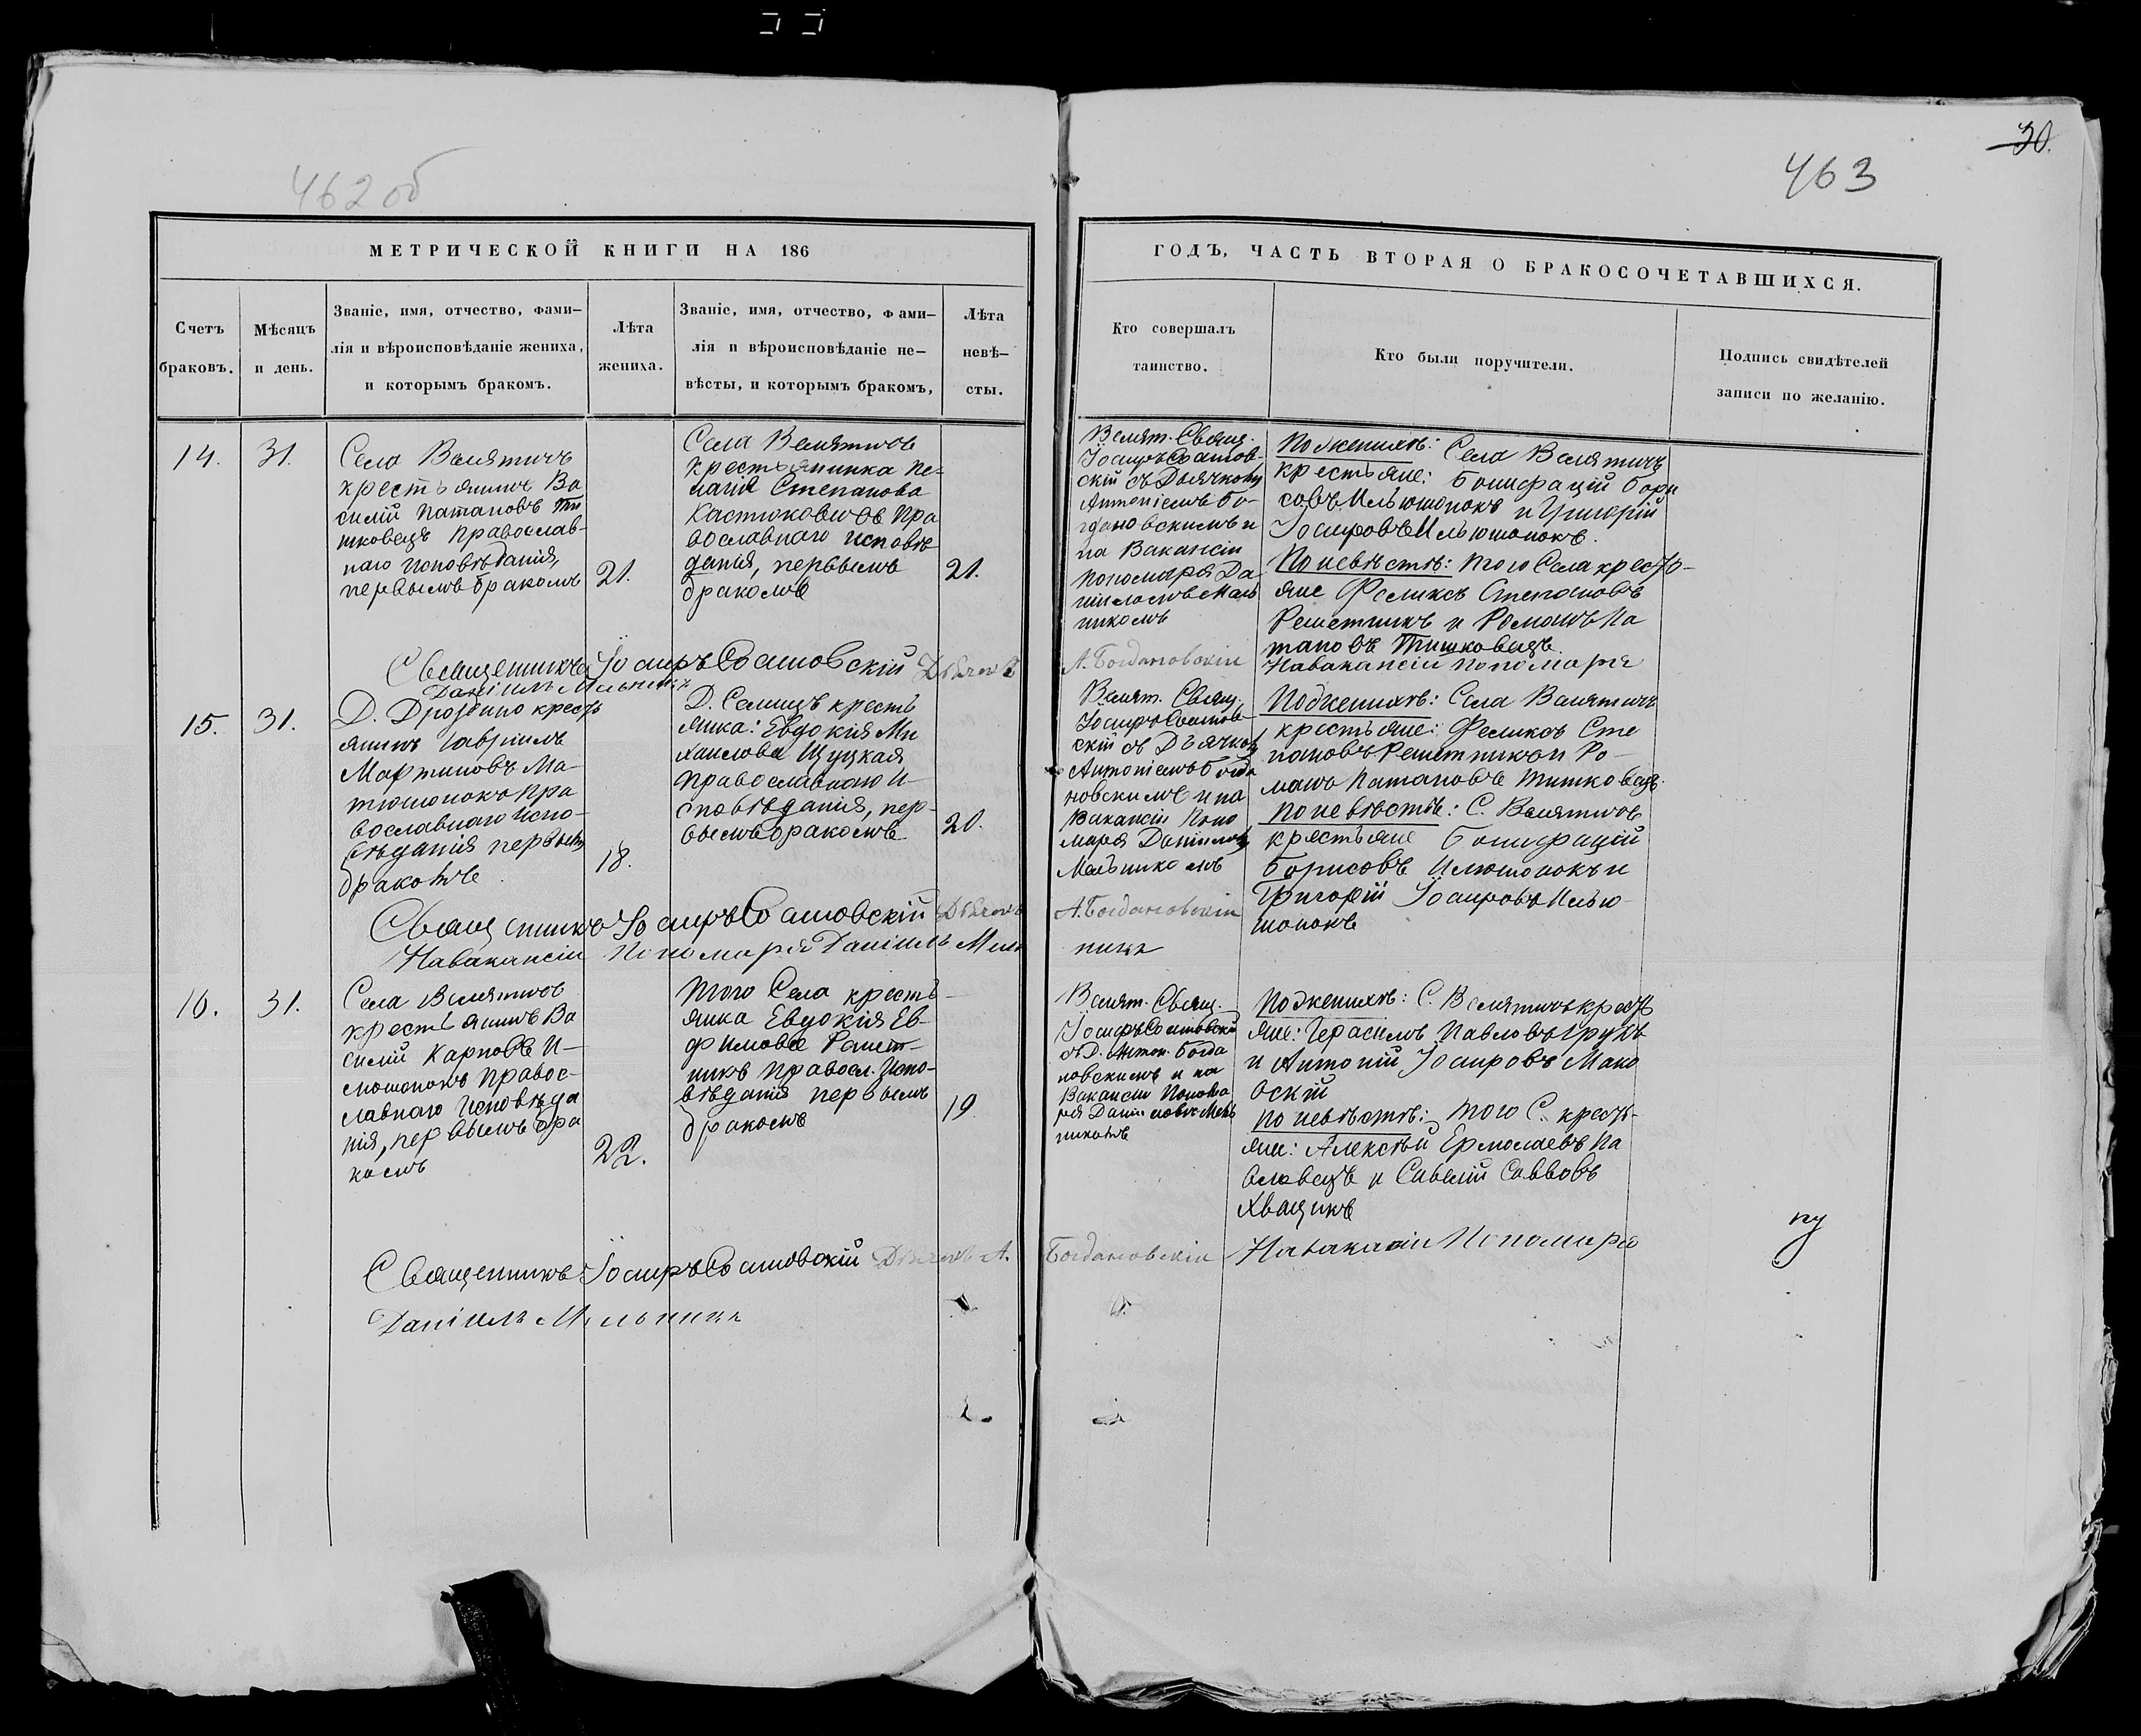 30.
462 об
463
МЕТРИЧЕСКОЙ КНИГИ НА 186
ГОДЪ, ЧАСТЬ ВТОРАЯ О БРАКОСОЧЕТАВШИХСЯ.
Счетъ
браковъ.
Мѣсяцъ
и день.
Званіе, имя, отчество, фами-
лія и вѣроисповѣданіе жениха,
и которымъ бракомъ.
Лѣта
жениха.
Званіе, имя, отчество, фами-
лія и вѣроисповѣданіе не-
вѣсты, и которымъ бракомъ,
Лѣта
невѣ-
сты.
Кто совершалъ
таинство.
Кто были поручители.
Подпись свидѣтелей
записи по желанію.
14.
31.
Села Велятичъ
крестьянинъ Ва
силій Патаповъ Ти
шковецъ Православ-
наго исповѣданія,
первымъ бракомъ
21.
Села Велятичъ
крестьянинка Пе-
лагія Степанова
Кастюковичъ Пра
вославнаго исповѣ
данія, первымъ
бракомъ
21.
Велят. Свящ.
Іосифъ
скій съ Дьячкомъ
Антоніемъ Бо-
гдановскимъ и
на Вакансіи
Пономаря Да
ніиломъ Мель
никомъ
По женихѣ: Села Велятичъ
крестьяне: Бонифацій Бори
совъ Ильюшонокъ и Григорій
Іосифовъ Ильюшонокъ.
По невѣстѣ: того Села кресть-
яне Феликсъ Степановъ
Решетникъ и Романъ Па
таповъ Тишковецъ.
Священникъ Іосифъ Дьячекъ
А. Богдановскій
На вакансіи пономаря
Даніилъ Мельникъ
15.
31.
Д. Дроздино кресть
янинъ Гавріилъ
Мартиновъ Ма-
тюшонокъ Пра
вославнаго испо-
вѣданія первымъ
бракомъ
18.
Д. Селищъ кресть
янка: Евдокія Ми
хаилова Щуцкая
Православнаго и-
сповѣданія, пер-
вымъ бракомъ
20.
Велят. Свящ.
Іосифъ
скій съ Дьячкомъ
Антоніемъ Богда
новскимъ и на
Вакансіи Поно
маря Даніиломъ
Мельникомъ
По женихѣ: Села Велятичъ
крестьяне: Феликсъ Сте
пановъ Решетникъ и Ро-
манъ Патаповъ Тишковецъ.
По невѣстѣ: С. Велятичъ
крестьяне Бонифацій
Борисовъ Илюшонокъ и
Григорій Іосифовъ Илью-
шонокъ
Священникъ Іосифъ Дьячекъ
А. Богдановскій
На вакансіи Пономаря Даніилъ Мель
никъ
16.
31.
Села Велятичъ
крестьянинъ Ва
силій Карповъ И-
люшонокъ Правос-
лавнаго Исповѣда
нія, первымъ бра
комъ
22.
Того Села кресть-
янка Евдокія Ев-
фимова Решет-
никъ Правосл. Испо-
вѣданія первымъ
бракомъ
19
Велят. Свящ.
Іосифъ
съ Д. Антон. Богда
новскимъ и на
Вакансіи Понома
ря Даніиломъ Мель
никомъ
По женихѣ: С. Велятичъ кресть
яне: Герасимъ Павловъ Грукъ
и Антоній Іосифовъ Мако
вскій
По невѣстѣ: того С. кресть-
яне: Алексѣй Ермолаевъ Па
влавецъ и Савелій Савовъ
Хващикъ
Священникъ Іосифъ Дьячекъ А.
Богдановскій На вакансіи Пономаря
Даніилъ Мельникъ